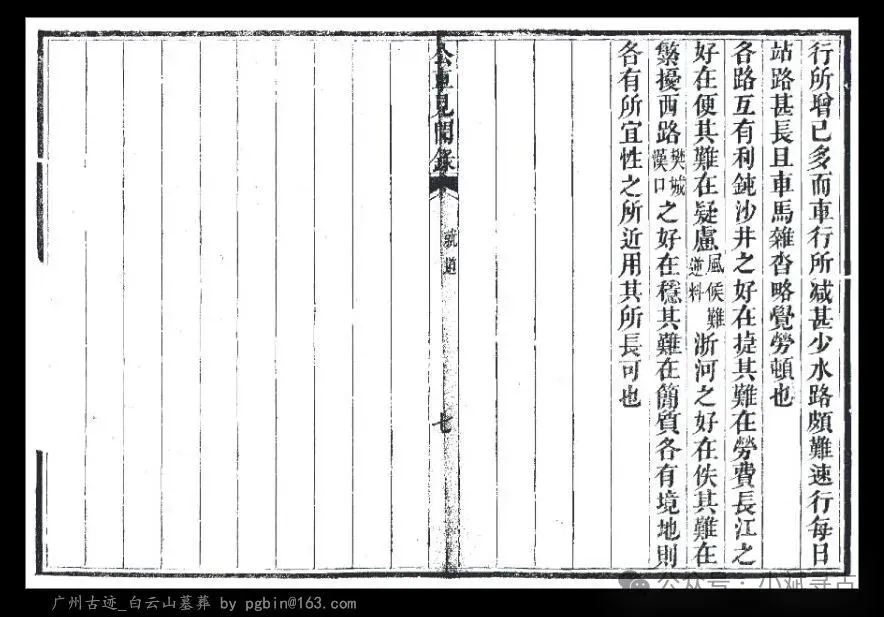 行所增已多而車行所減甚少水路頗難速行每日
站路甚長且車馬雜沓略覺勞頓也
各路互有利鈍沙井之好在捷其難在勞費長江之
好在便其難在疑慮風候難逆料浙河之好在佚其難在
繁擾西路樊城漢口之好在穩其難在簡質各有境地則
各有所宜性之所近用其所長可也
公車見聞錄
就道
七
公众号
广州古迹_白云山墓葬 by pgbin@163.com